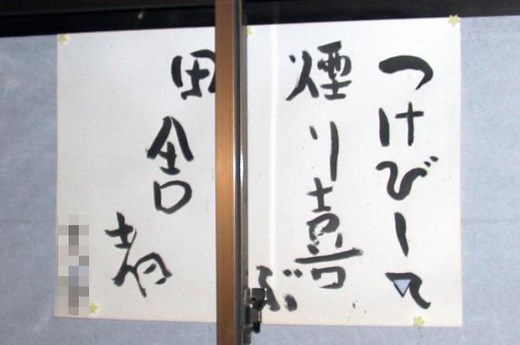 つけびーて
煙り喜ぶ
田舎者